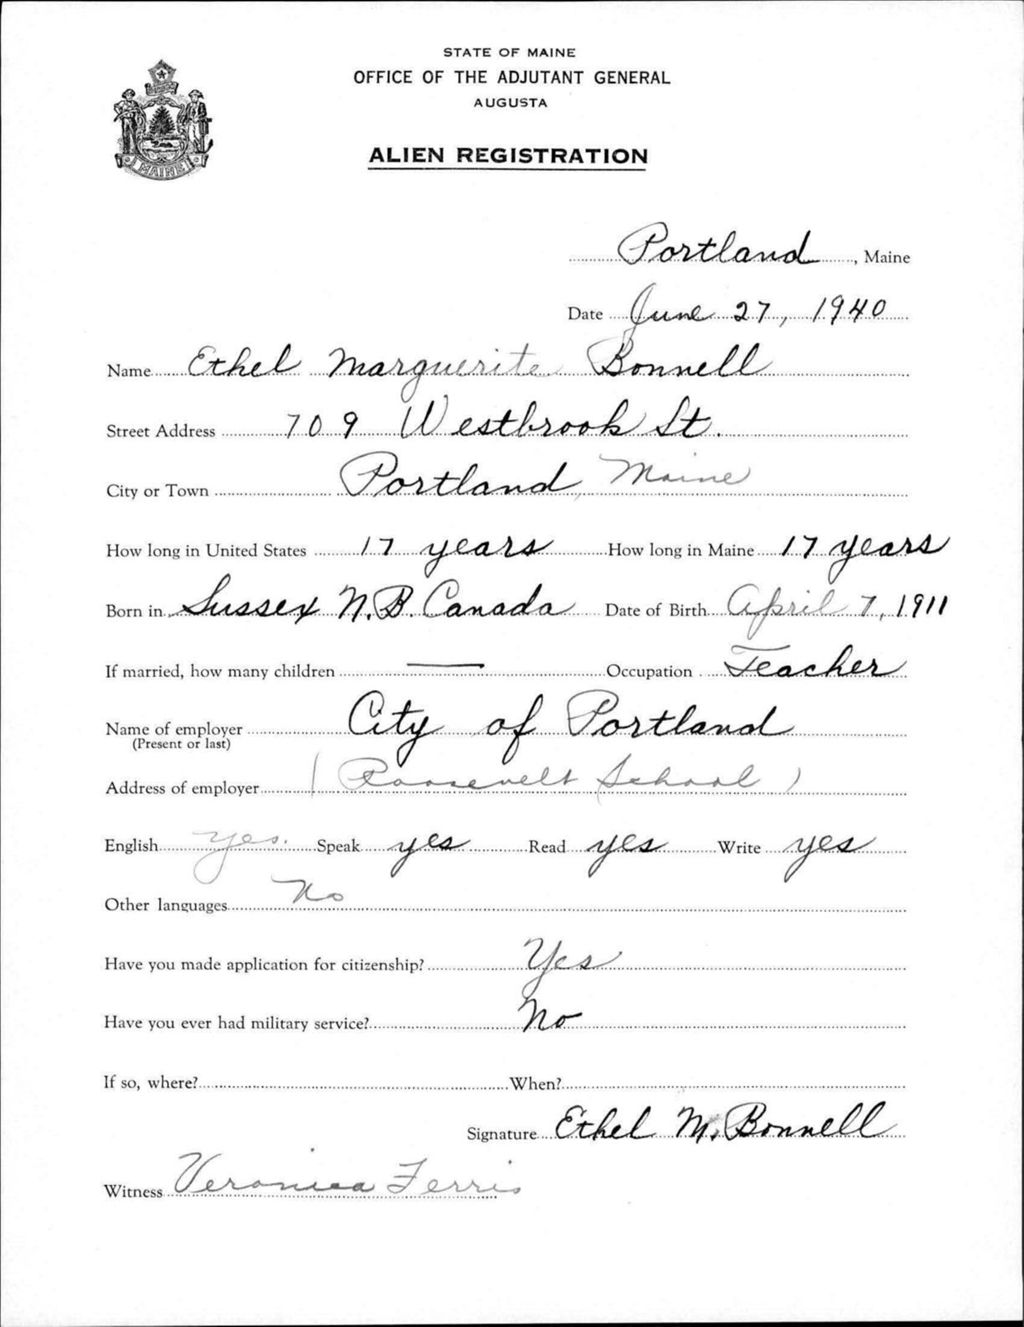 STATE OF MAINE
OFFICE OF THE ADJUTANT GENERAL
AUGUSTA
ALIEN REGISTRATION
MAINE
Portland, Maine
Date June 27, 1940
Name Ethel Marguerite Bonnell
Street Address 709 Westbrook St.
City or Town Portland, Maine
How long in United States 17 years How long in Maine 17 years
Born in Sussex N.B. Canada Date of Birth April 7, 1911
If married, how many children — Occupation Teacher
Name of employer City of Portland
(Present or last)
Address of employer (Roosevelt School)
English yes. Speak yes Read yes Write yes
Other languages No
Have you made application for citizenship? Yes
Have you ever had military service? No
If so, where? When?
Signature Ethel M. Bonnell
Witness Veronica Ferris